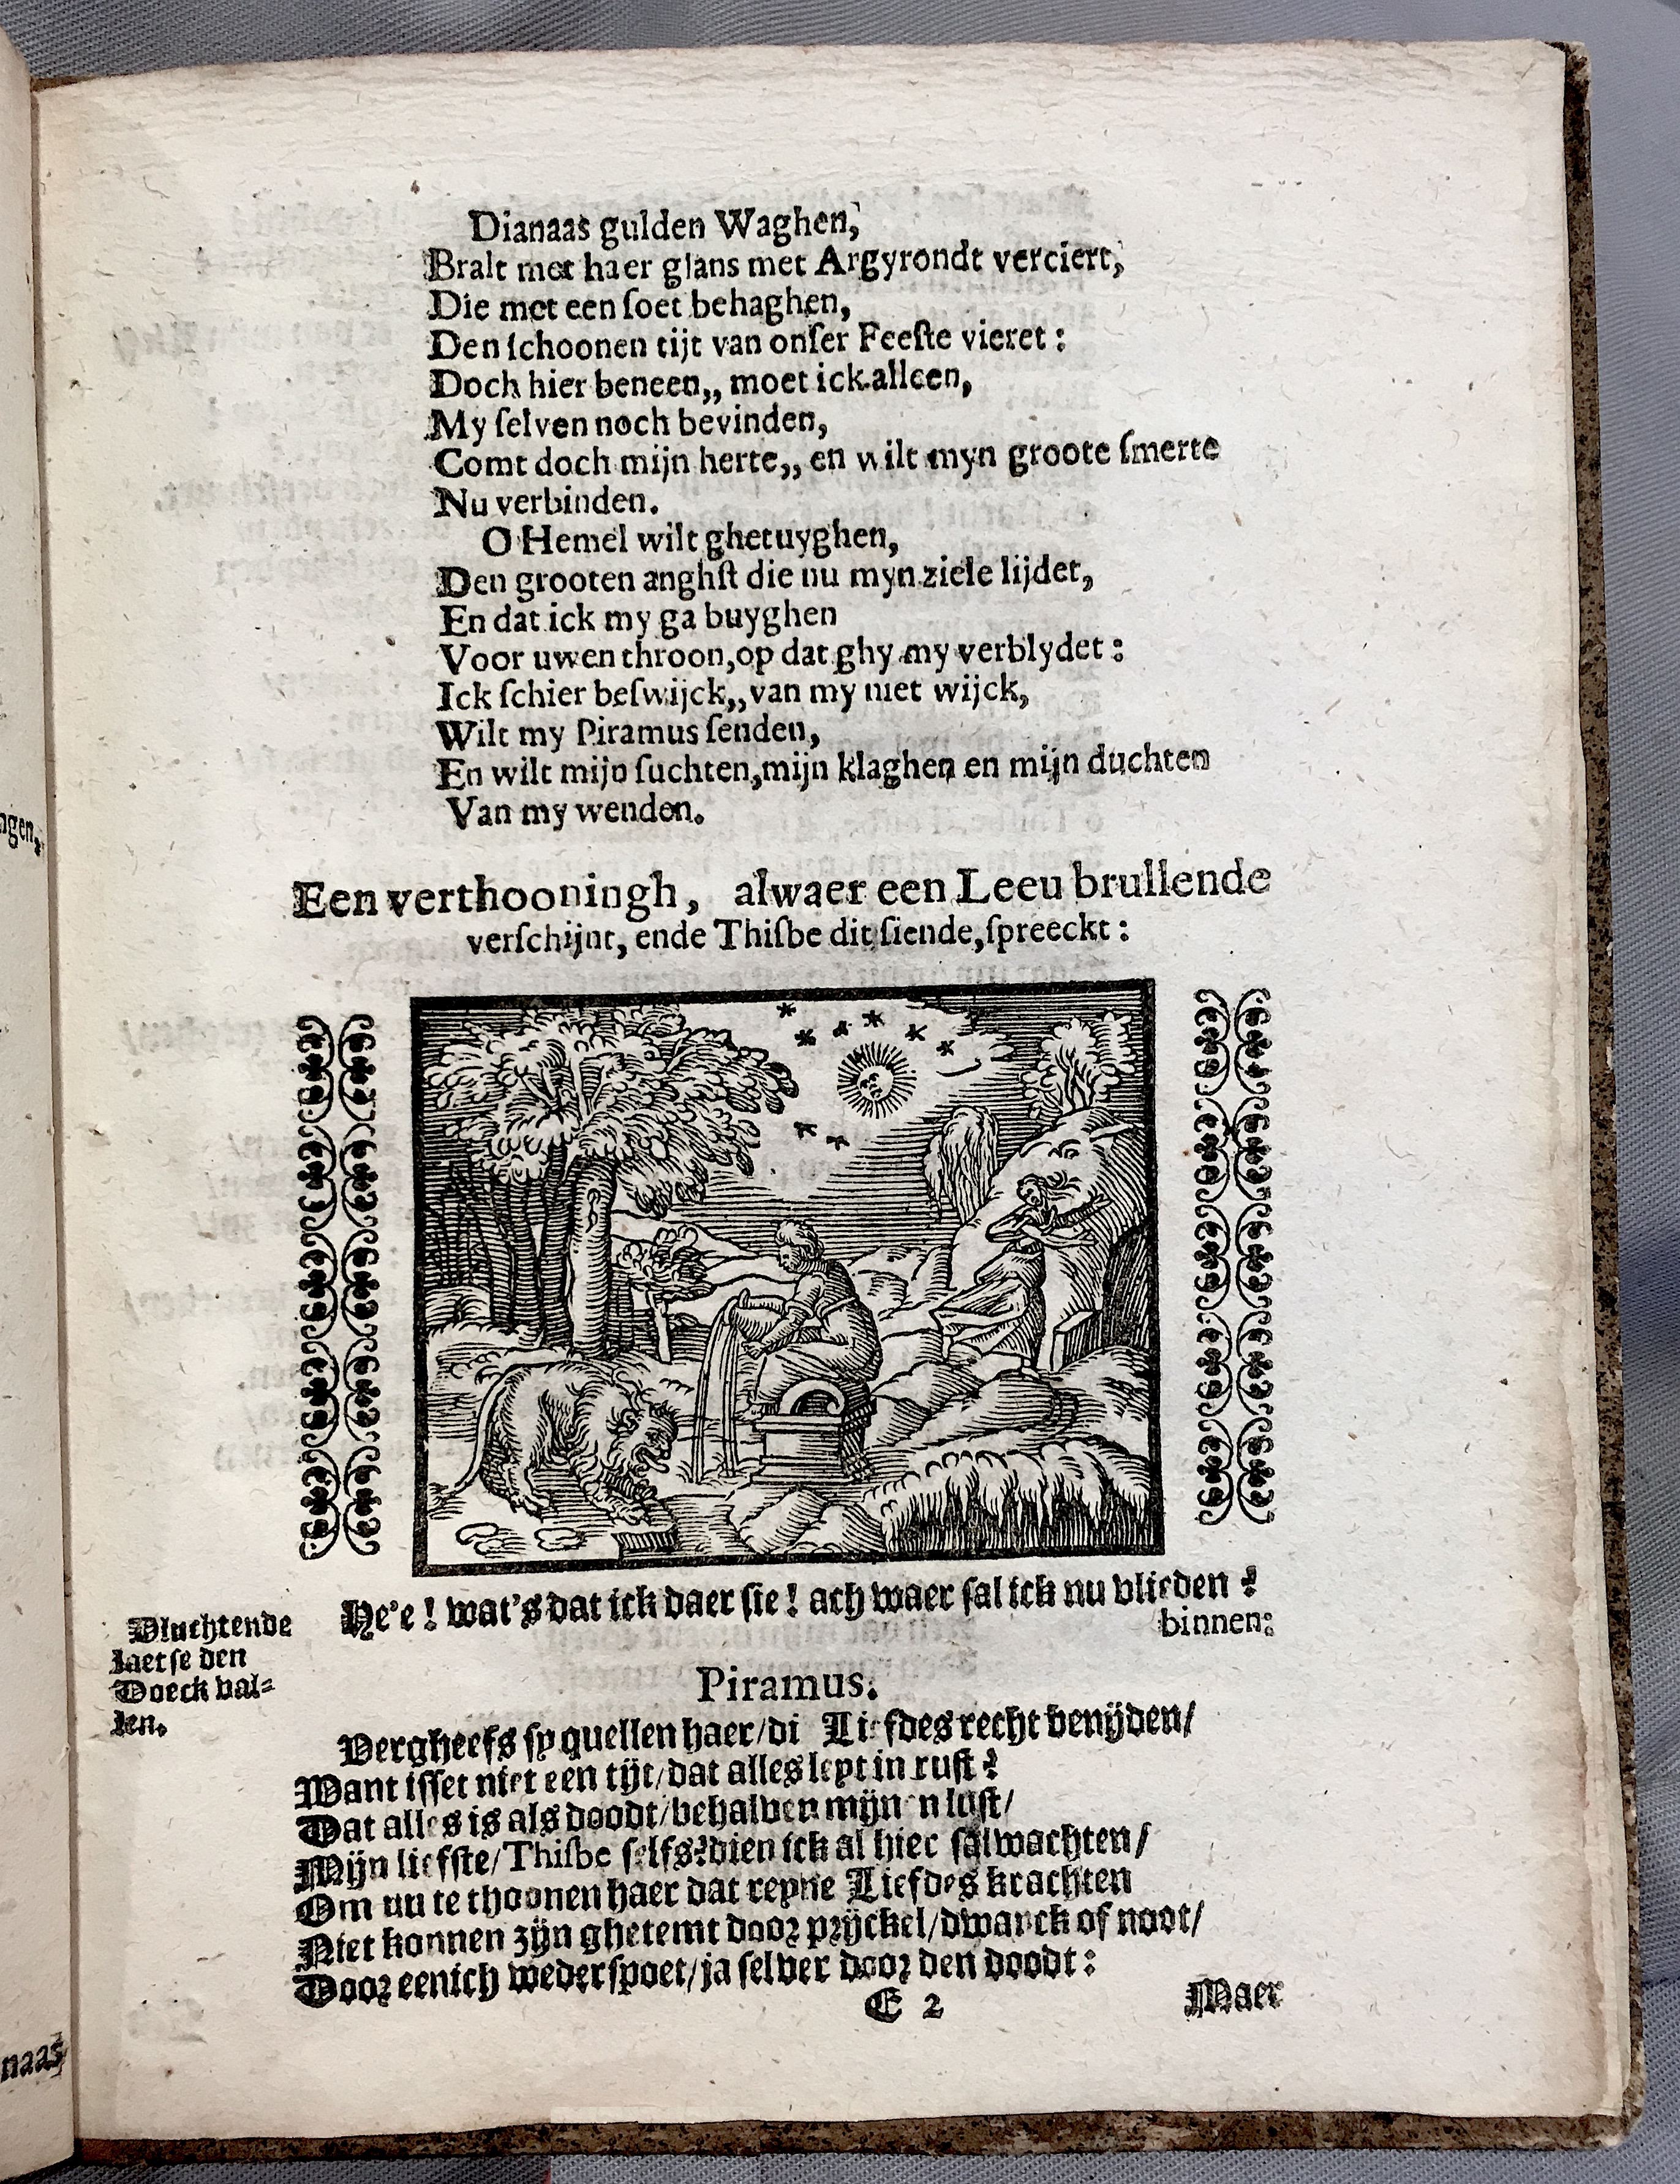 Dianaas gulden Waghen,
Bralt met haer glans met Argyrondt verciert,
Die met een ſoet behaghen,
Den ſchoonen tijt van onſer Feeſte vieret :
Doch hier beneen,, moet ick alleen,
My ſelven noch bevinden,
Comt doch mijn herte,, en wilt myn groote ſmerte
Nu verbinden.
O Hemel wilt ghetuyghen,
Den grooten anghſt die nu myn ziele lijdet,
En dat ick my ga buyghen
Voor uwen throon, op dat ghy my verblydet :
Ick ſchier beſwijck,, van my niet wijck,
Wilt my Piramus ſenden,
En wilt mijn ſuchten, mijn klaghen en mijn duchten
Van my wenden.
Een verthooningh, alwaer een Leeu brullende
verſchijnt, ende Thiſbe dit ſiende, ſpreeckt :
He'e ! wat's dat ick daer ſie ! ach waer ſal ick nu vlieden ?
binnen:
Vluchtende
laet ſe den
Doeck val-
len.
Piramus.
Vergheefs ſy quellen haer/ di Liefdes recht benijden/
Want iſſet niet een tijt/ dat alles leyt in ruſt ?
Dat alles is als doodt/ behalven mijnen luſt/
Mijn liefſte/ Thiſbe ſelfs? dien ick al hier ſal wachten/
Om uu te thoonen haer dat reyne Liefdes krachten
Niet konnen zijn ghetemt door prijckel/ dwanck of noot/
Door eenich wederſpoet/ ja ſelver door den doodt :
E 2
Maer
ngen,
naas